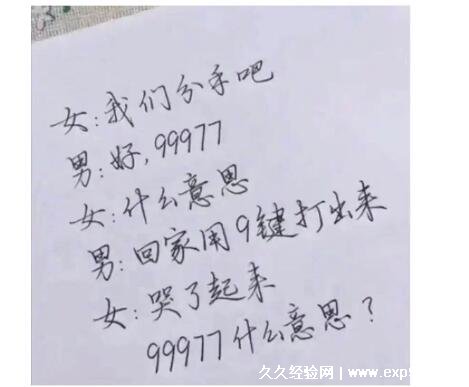 女:我们分手吧
男:好,99977
女:什么意思
男:回家用9键打出来
女:哭了起来
99977什么意思?
久久经验网 | www.exp9